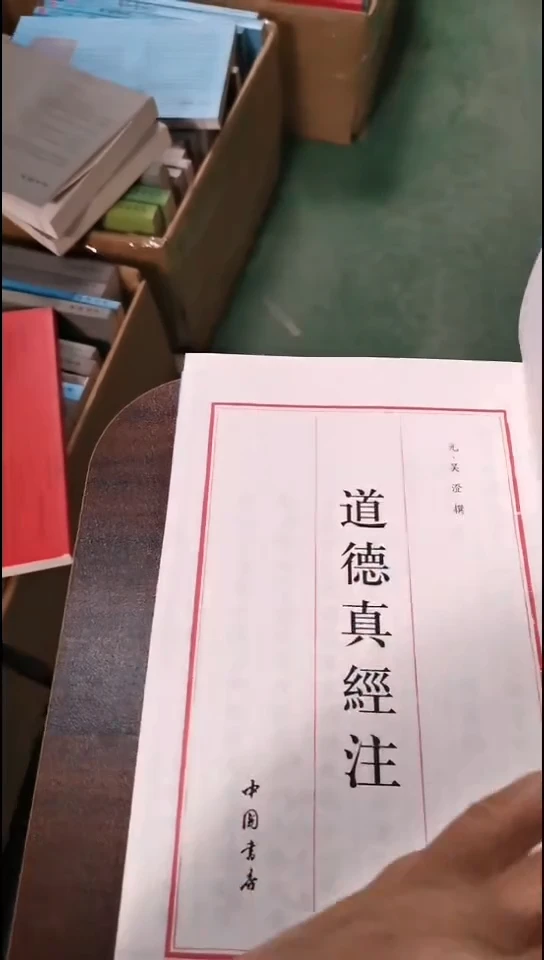 元·吴澄撰
道德真經注
中国书店